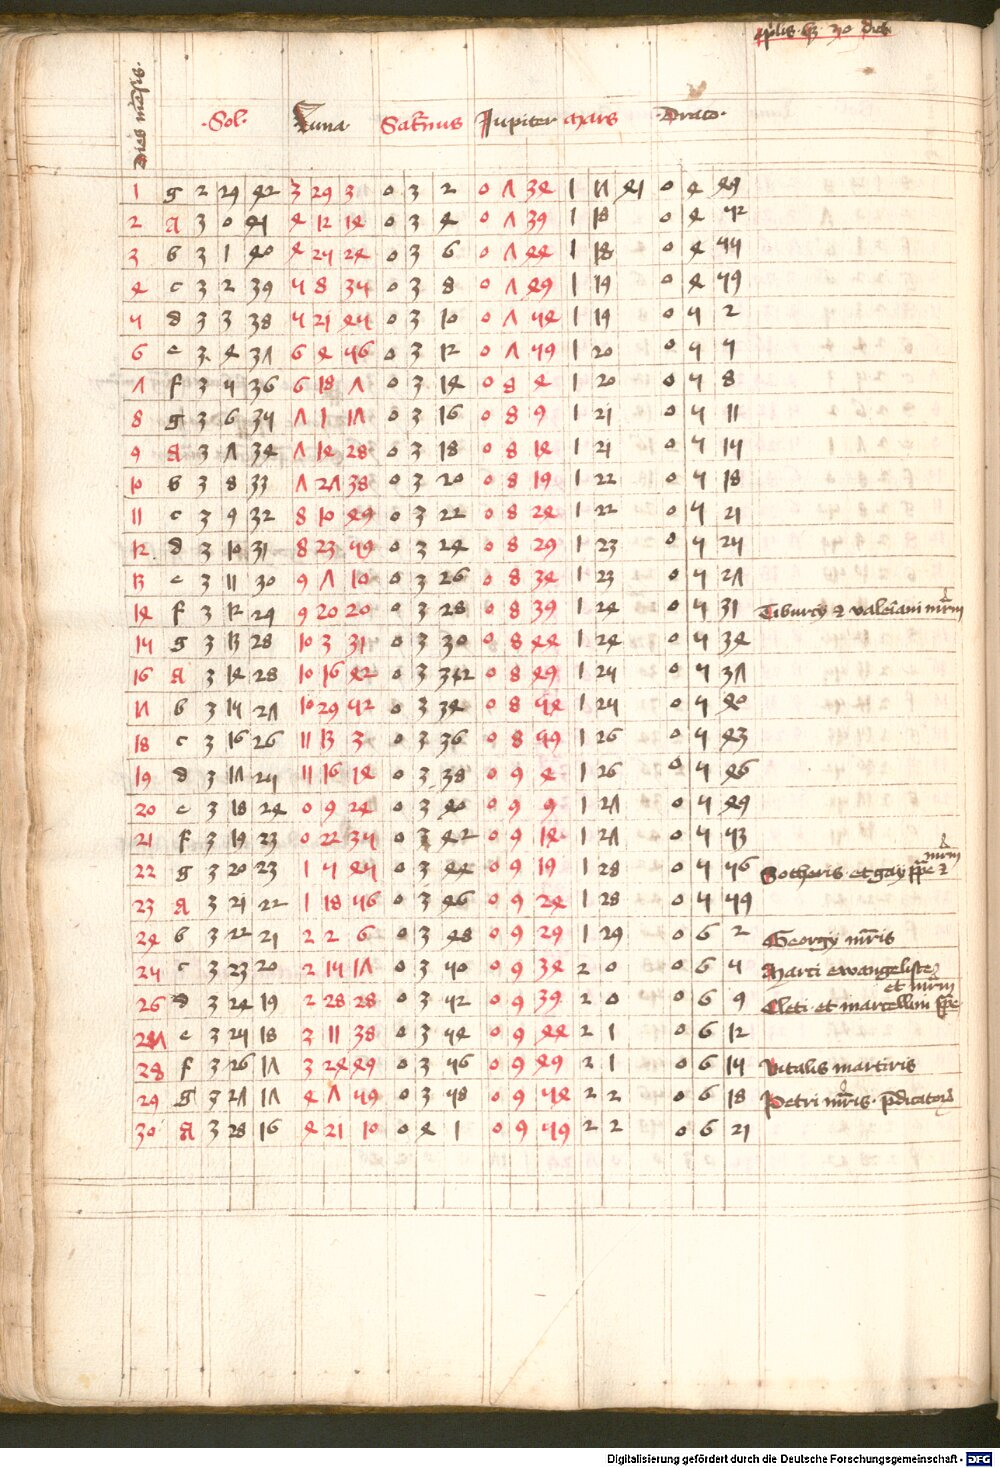 Aplis hz 30 dies
Dies mensis. Sol. Luna Saturnus Jupiter Mars Draco.
1 g 2 29 42 3 29 3 0 3 2 0 7 34 1 17 41 0 4 49
2 A 3 0 41 4 12 14 0 3 4 0 7 39 1 18 0 4 52
3 b 3 1 40 4 25 24 0 3 6 0 7 44 1 18 0 4 55
4 c 3 2 39 5 8 35 0 3 8 0 7 49 1 19 0 4 59
5 d 3 3 38 5 21 45 0 3 10 0 7 54 1 19 0 5 2
6 e 3 4 37 6 4 56 0 3 12 0 7 59 1 20 0 5 5
7 f 3 5 36 6 18 7 0 3 14 0 8 4 1 20 0 5 8
8 g 3 6 35 7 1 17 0 3 16 0 8 9 1 21 0 5 11
9 A 3 7 34 7 14 28 0 3 18 0 8 14 1 21 0 5 15
10 b 3 8 33 7 27 38 0 3 20 0 8 19 1 22 0 5 18
11 c 3 9 32 8 10 49 0 3 22 0 8 24 1 22 0 5 21
12 d 3 10 31 8 23 59 0 3 24 0 8 29 1 23 0 5 25
13 e 3 11 30 9 7 10 0 3 26 0 8 34 1 23 0 5 27
14 f 3 12 29 9 20 20 0 3 28 0 8 39 1 24 0 5 31 Tiburcy et valeriani mrm
15 g 3 13 28 10 3 31 0 3 30 0 8 44 1 24 0 5 34
16 A 3 14 28 10 16 42 0 3 32 0 8 49 1 25 0 5 37
17 b 3 15 27 10 29 52 0 3 34 0 8 54 1 25 0 5 40
18 c 3 16 26 11 13 3 0 3 36 0 8 59 1 26 0 5 43
19 d 3 17 25 11 16 14 0 3 38 0 9 4 1 26 0 5 46
20 e 3 18 24 0 9 24 0 3 40 0 9 9 1 27 0 5 49
21 f 3 19 23 0 22 35 0 3 42 0 9 14 1 27 0 5 53
22 g 3 20 23 1 5 45 0 3 44 0 9 19 1 28 0 5 56 Sotheris et gay ppe et mrm
23 A 3 21 22 1 18 56 0 3 46 0 9 24 1 28 0 5 59
24 b 3 22 21 2 2 6 0 3 48 0 9 29 1 29 0 6 2 Georgy mris
25 c 3 23 20 2 15 17 0 3 50 0 9 34 2 0 0 6 5 Marci ewangeliste
26 d 3 24 19 2 28 28 0 3 52 0 9 39 2 0 0 6 9 Cleti et marcellini ppe et mrm
27 e 3 25 18 3 11 38 0 3 54 0 9 44 2 1 0 6 12
28 f 3 26 17 3 24 49 0 3 56 0 9 49 2 1 0 6 15 Vitalis martiris
29 g 3 27 17 4 7 59 0 3 58 0 9 54 2 2 0 6 18 Petri mris. pdicatorz
30 A 3 28 16 4 21 10 0 4 1 0 9 59 2 2 0 6 21
Digitalisierung gefördert durch die Deutsche Forschungsgemeinschaft - DFG